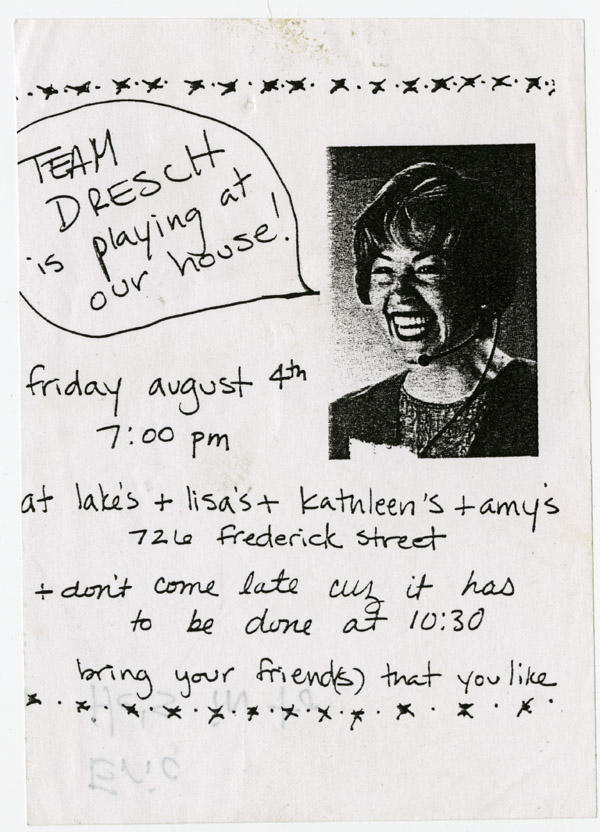 TEAM
DRESCH
is playing at
our house!
friday august 4th
7:00 pm
at lake's + lisa's + kathleen's + amy's
726 frederick street
+ don't come late cuz it has
to be done at 10:30
bring your friend(s) that you like